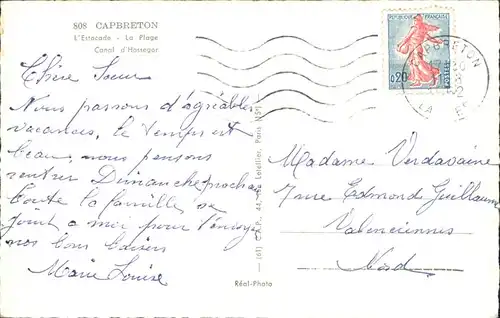 808 CAPBRETON
L'Estacade - La Plage
Canal d'Hossegor
REPUBLIQUE FRANÇAISE
0,20
POSTES
CAPBRETON
Chère Soeur
Nous passons d'agréables
vacances, le temps est
beau, nous pensons
rentrer Dimanche prochain
toute la famille se
joint a moi pour t'envoyer
nos bons baisers
Marie Louise
(61) C.A.P., 42, Rue Letellier, Paris
Madame Verdavaine
7 rue Edmond Guillaume
Valenciennes
Nord
Réal-Photo